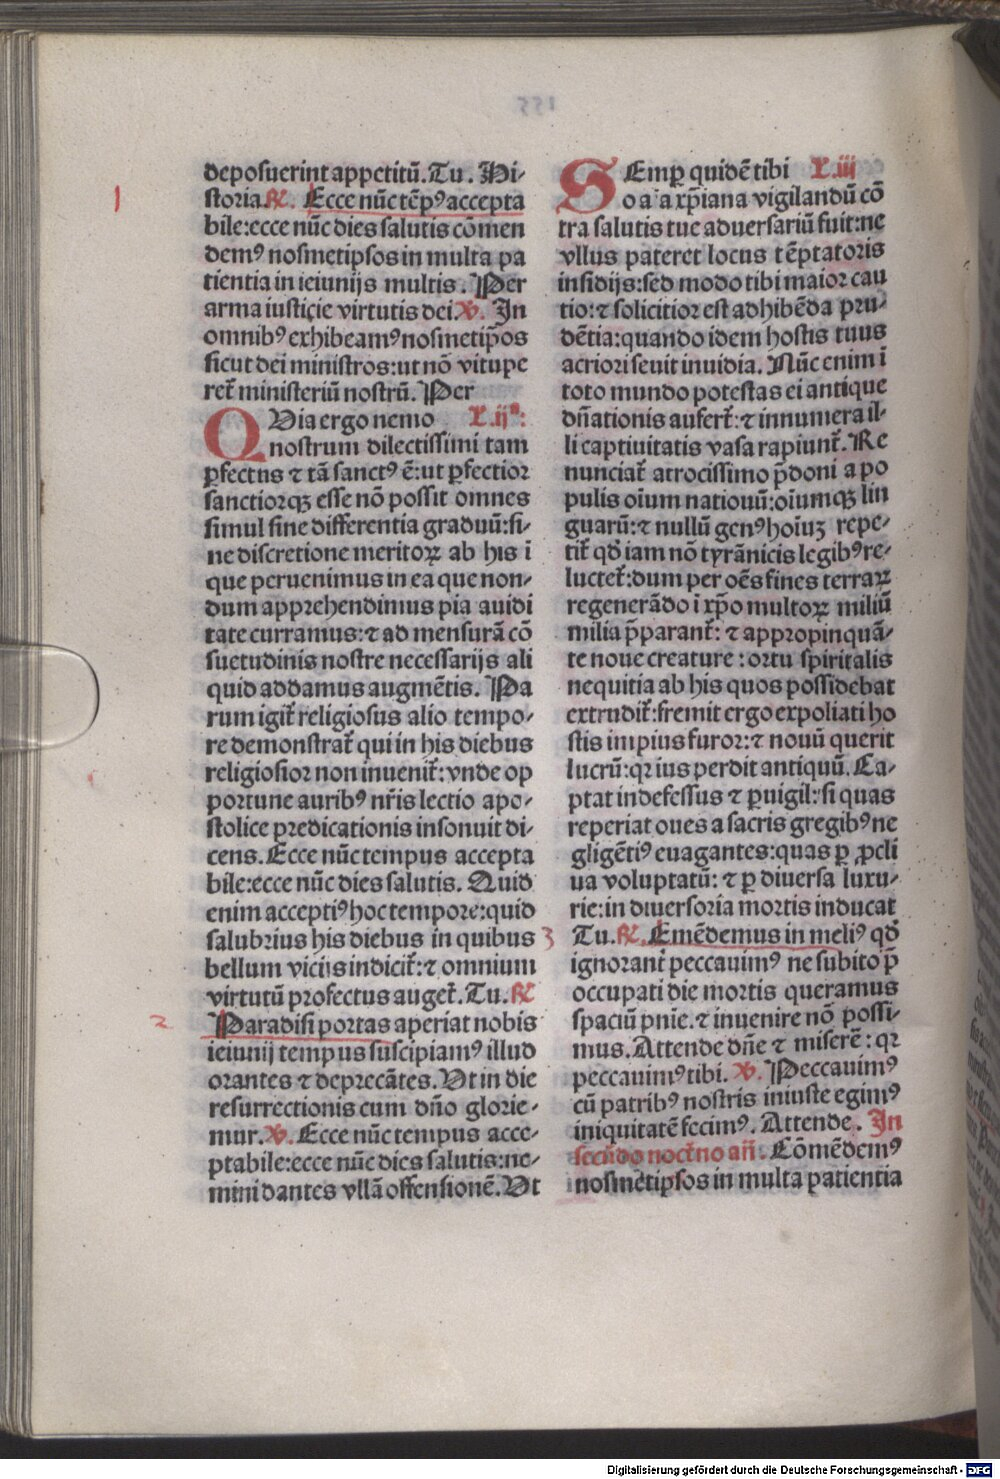 deposuerint appetitū. Tu. Hi-
storia. ℟. Ecce nūc tēpꝰ accepta
bile: ecce nūc dies salutis cōmen
demꝰ nosmetipsos in multa pa
tientia in ieiunijs multis. Per
arma iusticie virtutis dei. ℣. In
omnibꝰ exhibeamꝰ nosmetip̄os
sicut dei ministros: ut nō vitupe
ret̄ ministeriū nostrū. Per
QVia ergo nemo L. ijᵃ:
nostrum dilectissimi tam
ꝑfectns ⁊ tā sanctꝰ ē: ut ꝑfectior
sanctiorqꝫ esse nō possit omnes
simul sine differentia graduū: si-
ne discretione meritoꝝ ab his ī
que peruenimus in ea que non-
dum apprehendimus pia auidi
tate curramus: ⁊ ad mensurā cō
suetudinis nostre necessarijs ali
quid addamus augmētis. Pa
rum igit̄ religiosus alio tempo-
re demonstrat̄ qui in his diebus
religiosior non inuenit̄: vnde op
portune auribꝰ nr̄is lectio apo-
stolice predicationis insonuit di-
cens. Ecce nūc tempus accepta
bile: ecce nūc dies salutis. Quid
enim acceptiꝰ hoc tempore: quid
salubrius his diebus in quibus
bellum vicijs indicit̄: ⁊ omnium
virtutū profectus auget̄. Tu. ℟
Paradisi portas aperiat nobis
ieiunij tempus suscipiamꝰ illud
orantes ⁊ deprecātes. Vt in die
resurrectionis cum dn̄o glorie-
mur. ℣. Ecce nūc tempus acce-
ptabile: ecce nūc dies salutis: ne-
mini dantes vllā offensionē. Vt
SEmꝑ quidē tibi L. iij
o aīa xp̄iana vigilandū cō
tra salutis tue aduersariū fuit: ne
vllus pateret locus tēptatoris
insidijs: sed modo tibi maior cau
tio: ⁊ solicitior est adhibēda pru-
dētia: quando idem hostis tuus
acriori seuit inuidia. Nūc enim ī
toto mundo potestas ei antique
dn̄ationis aufert̄: ⁊ innumera il-
li captiuitatis vasa rapiunt̄. Re
nunciat̄ atrocissimo p̄doni a po
pulis oīum nationuū: oīumqꝫ lin
guarū: ⁊ nullū genꝰ hoīuꝫ repe-
tit̄ qd̄ iam nō tyrānicis legibꝰ re-
luctet̄: dum per oēs fines terraꝝ
regenerādo ī xp̄o multoꝝ miliū
milia p̄parant̄: ⁊ appropinquā-
te noue creature: ortu spiritalis
nequitia ab his quos possidebat
extrudit̄: fremit ergo expoliati ho
stis impius furor: ⁊ nouū querit
lucrū: qꝛ ius perdit antiquū. Ca-
ptat indefessus ⁊ ꝑuigil: si quas
reperiat oues a sacris gregibꝰ ne
gligētiꝰ euagantes: quas ꝑ ꝓcli
ua voluptatū: ⁊ ꝑ diuersa luxu-
rie: in diuersoria mortis inducat
Tu. ℟. Emēdemus in meliꝰ qd̄
ignorant̄ peccauimꝰ ne subito p̄
occupati die mortis queramus
spaciū pn̄ie. ⁊ inuenire nō possi-
mus. Attende dn̄e ⁊ miserē: qꝛ
peccauimꝰ tibi. ℣. Peccauimꝰ
cū patribꝰ nostris iniuste egimꝰ
iniquitatē fecimꝰ. Attende. In
secūdo noct̄no an̄. Cōmēdemꝰ
nosmetipsos in multa patientia
1
2
3
Digitalisierung gefördert durch die Deutsche Forschungsgemeinschaft - DFG